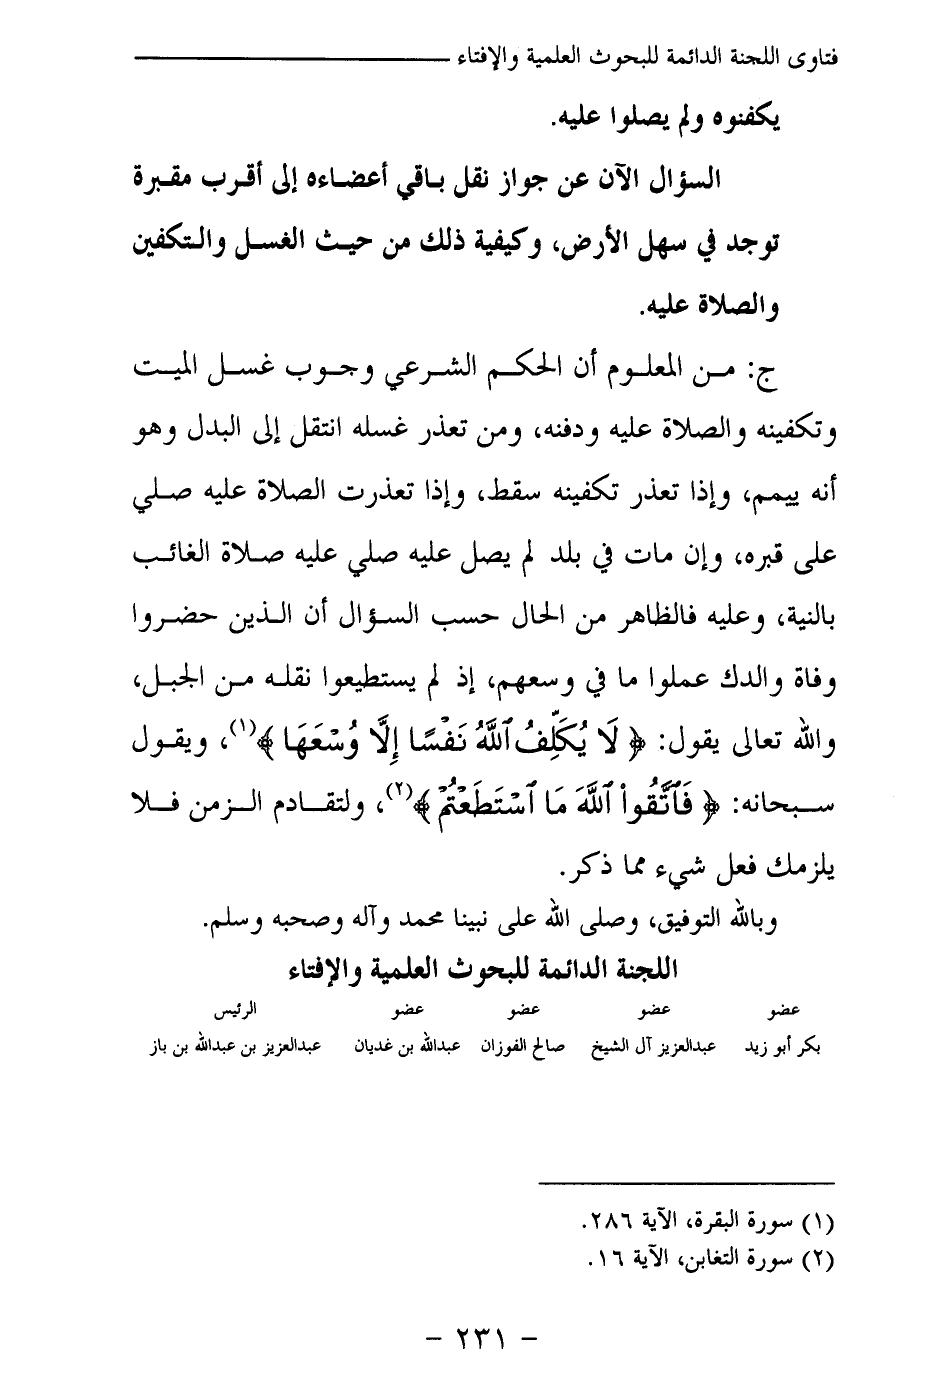 فتاوى اللجنة الدائمة للبحوث العلمية والإفتاء
يكفنوه ولم يصلوا عليه.
السؤال الآن عن جواز نقل باقي أعضاءه إلى أقرب مقبرة
توجد في سهل الأرض، وكيفية ذلك من حيث الغسل والتكفين
والصلاة عليه.
ج: من المعلوم أن الحكم الشرعي وجوب غسل الميت
وتكفينه والصلاة عليه ودفنه، ومن تعذر غسله انتقل إلى البدل وهو
أنه ييمم، وإذا تعذر تكفينه سقط، وإذا تعذرت الصلاة عليه صلي
على قبره، وإن مات في بلد لم يصل عليه صلي عليه صلاة الغائب
بالنية، وعليه فالظاهر من الحال حسب السؤال أن الذين حضروا
وفاة والدك عملوا ما في وسعهم، إذ لم يستطيعوا نقله من الجبل،
والله تعالى يقول: ﴿ لَا يُكَلِّفُ ٱللَّهُ نَفْسًا إِلَّا وُسْعَهَا ﴾(١)، ويقول
سبحانه: ﴿ فَٱتَّقُوا۟ ٱللَّهَ مَا ٱسْتَطَعْتُمْ ﴾(٢)، ولتقادم الزمن فلا
يلزمك فعل شيء مما ذكر.
وبالله التوفيق، وصلى الله على نبينا محمد وآله وصحبه وسلم.
اللجنة الدائمة للبحوث العلمية والإفتاء
عضو عضو عضو عضو الرئيس
بكر أبو زيد عبدالعزيز آل الشيخ صالح الفوزان عبدالله بن غديان عبدالعزيز بن عبدالله بن باز
(١) سورة البقرة، الآية ٢٨٦.
(٢) سورة التغابن، الآية ١٦.
- ٢٣١ -